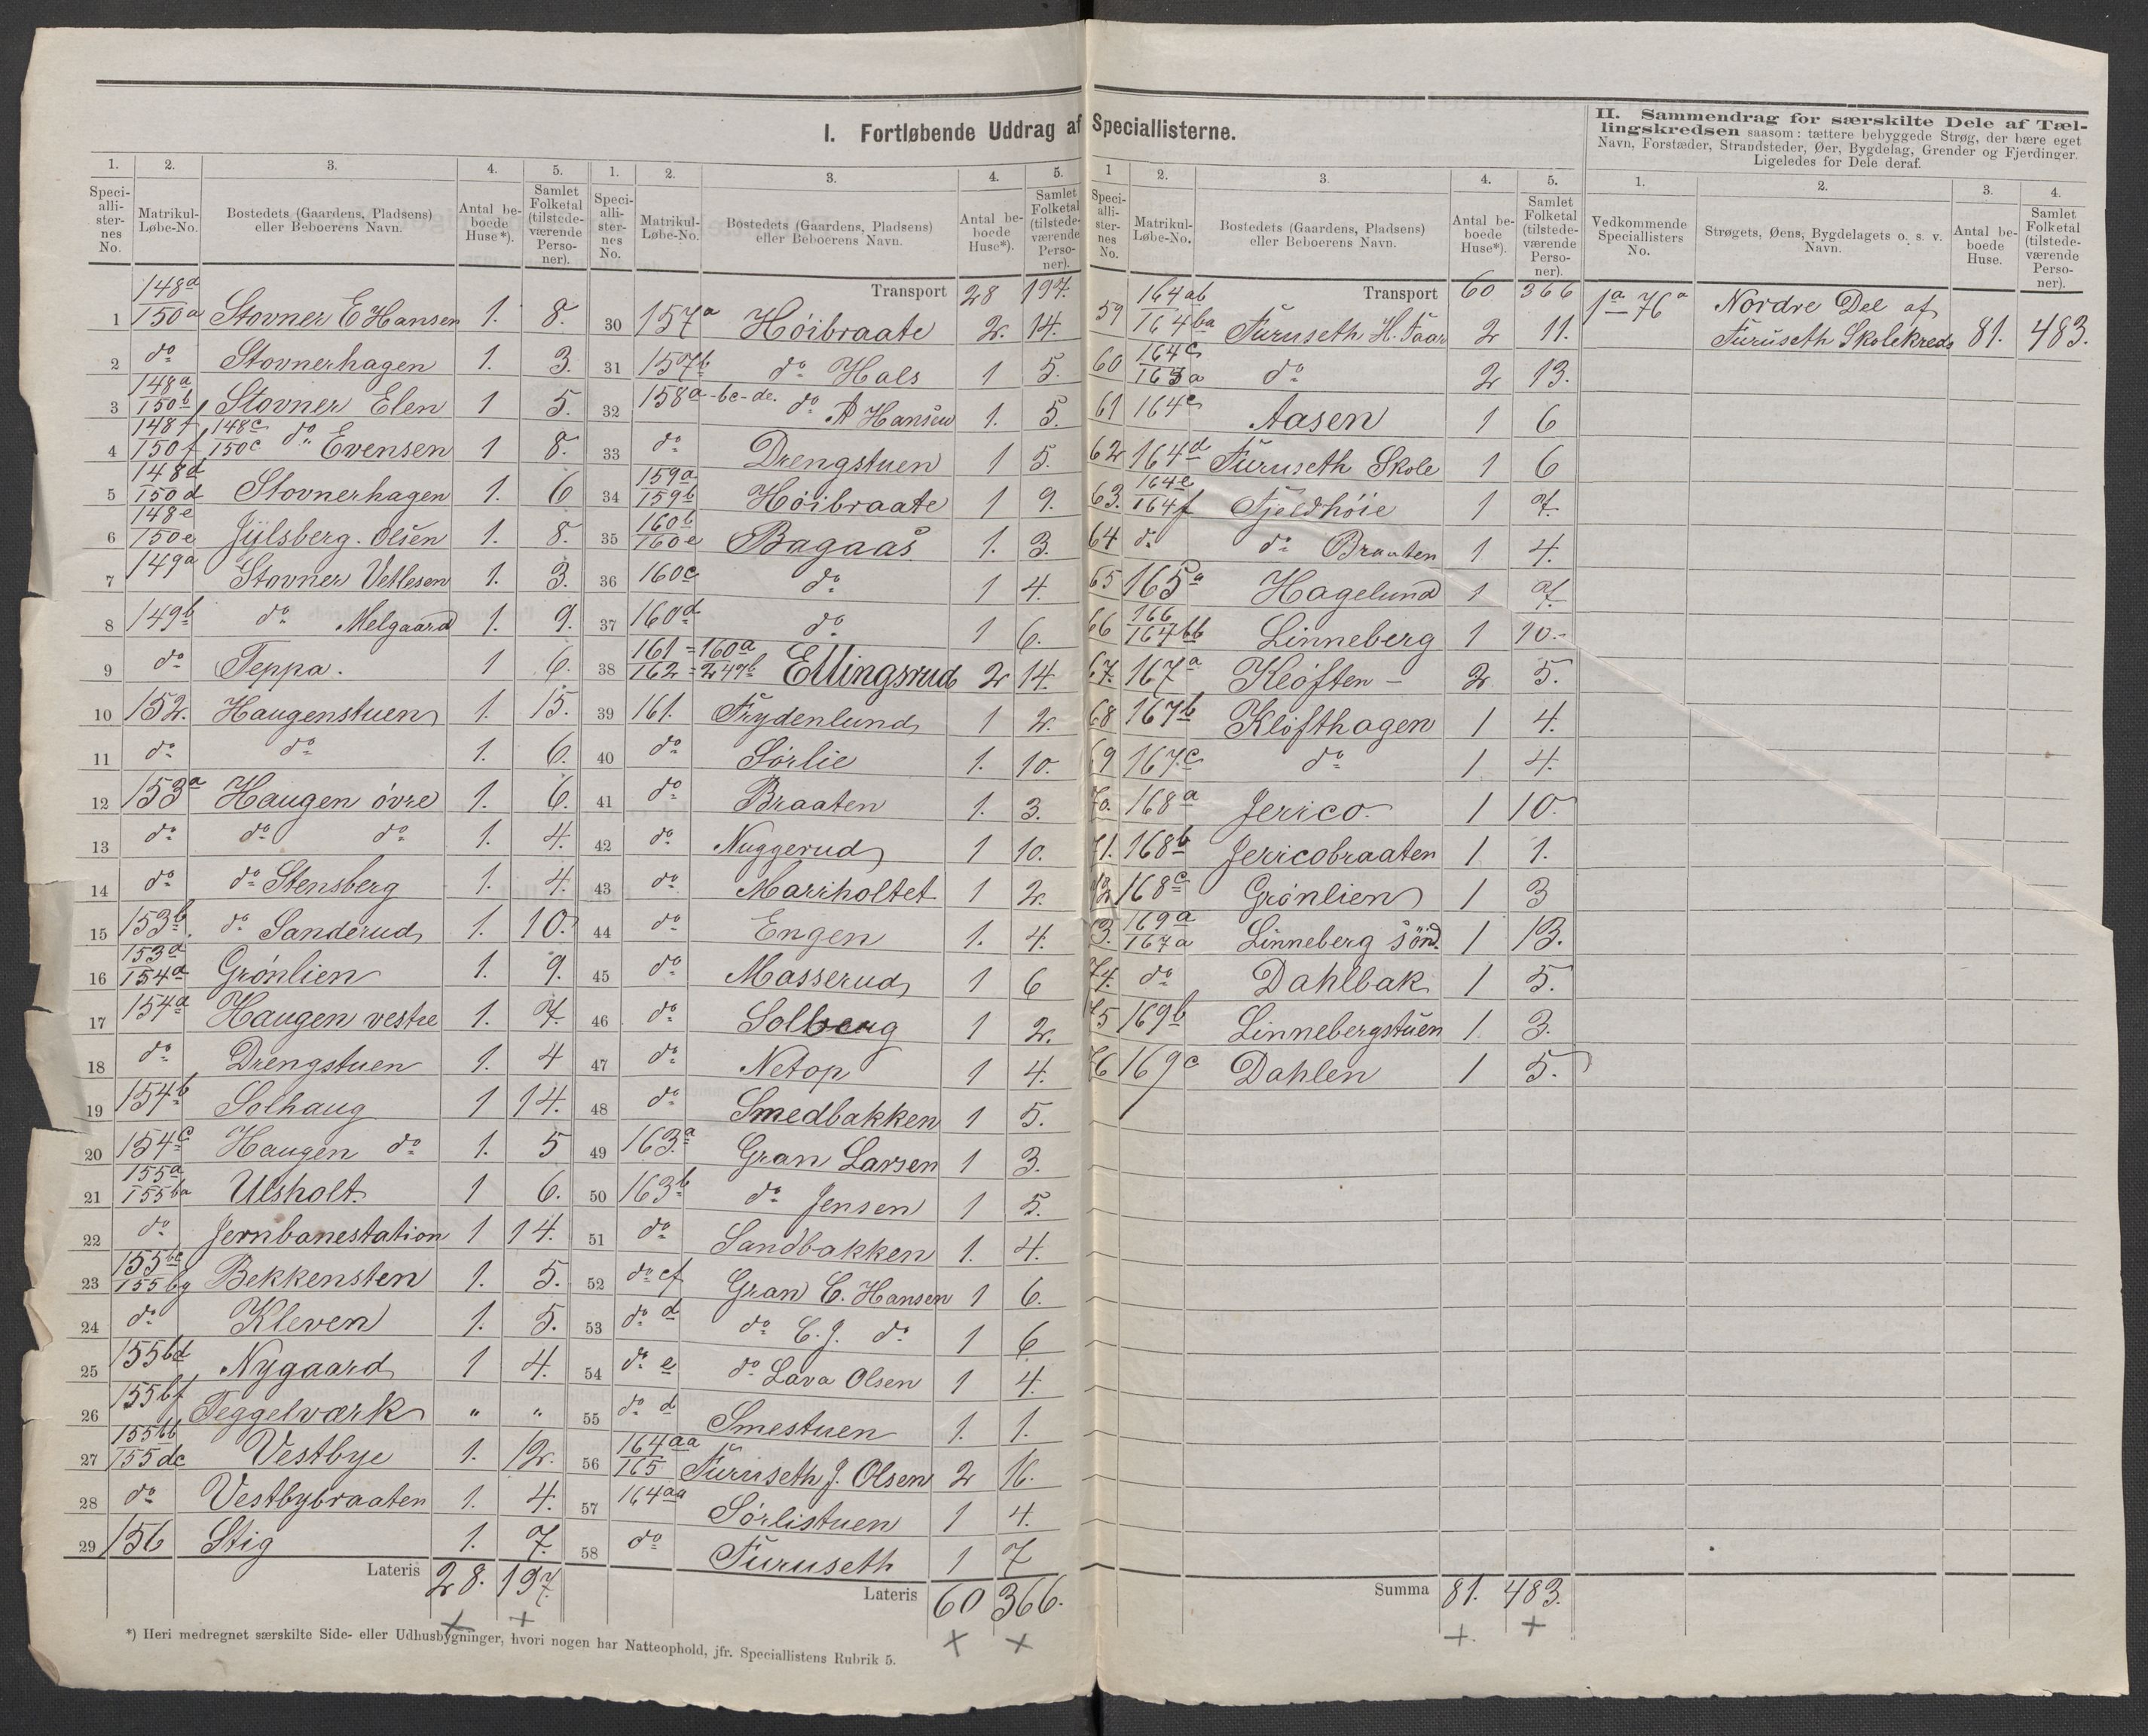 I. Fortløbende Uddrag af Speciallisterne.
II. Sammendrag for særskilte Dele af Tæl-
lingskredsen saasom: tættere bebyggede Strøg, der bære eget
Navn, Forstæder, Strandsteder, Øer, Bygdelag, Grender og Fjerdinger.
Ligeledes for Dele deraf.
1. 2. 3. 4. 5.
Speciallisternes No. Matrikul-Løbe-No. Bostedets (Gaardens, Pladsens) eller Beboerens Navn. Antal beboede Huse*). Samlet Folketal (tilstedeværende Personer).
1 148a/150a Stovner E Hansen 1. 8.
2 do Stovnerhagen 1. 3.
3 148a/150b Stovner Elen 1 5.
4 148f/150f 148c/150c do " Evensen 1 8.
5 148d/150d Stovnerhagen 1. 6
6 148e/150e Jylsberg. Olsen 1. 8.
7 149a Stovner Vetlesen 1. 3.
8 149b do Melgaard 1. 9.
9 do Teppa. 1 6.
10 152. Haugenstuen 1. 15.
11 do do 1. 6.
12 153a Haugen övre 1. 6.
13 do do do 1. 4.
14 do do Stensberg 1. 4.
15 153b. do Sanderud 1. 10.
16 153a/154a Grönlien 1. 9.
17 154a Haugen vestre 1. 7.
18 do Drengstuen 1. 4
19 154b Solhaug 1 14.
20 154c Haugen do 1. 5
21 155a/155ba Ulsholt 1 6.
22 do Jernbanestation 1 14.
23 155be/155bg Bekkensten 1. 5.
24 do Kleven 1. 5.
25 155bd Nygaard 1 4.
26 155bf Teggelværk " "
27 155bb/155dc Vestbye 1. 12.
28 do Vestbybraaten 1. 4.
29 156 Stig 1. 7.
Lateris 28. 197.
1. 2. 3. 4. 5.
Speciallisternes No. Matrikul-Løbe-No. Bostedets (Gaardens, Pladsens) eller Beboerens Navn. Antal beboede Huse*). Samlet Folketal (tilstedeværende Personer).
Transport 28 197.
30 157a Höibraate 2. 14.
31 157b do Hals 1 5.
32 158a-bc-de. do A Hansen 1. 5.
33 do Drengstuen 1 5.
34 159a/159b Höibraate 1 9.
35 160b/160e Bagaas 1. 3.
36 160c do 1 4.
37 160d do 1 6.
38 161=160a/162=247b Ellingsrud 2 14.
39 161. Frydenlund 1 2.
40 do Sörlie 1. 10.
41 do Braaten 1. 3.
42 do Nuggerud 1 10.
43 do Mariholtet 1 2.
44 do Engen 1. 4.
45 do Masserud 1 6
46 do Solberg 1 2.
47 do Netop 1 4.
48 do Smedbakken 1 5.
49 163.a Gran Larsen 1 3.
50 163b do Jensen 1 5.
51 do Sandbakken 1. 4.
52 do cf Gran C. Hansen 1 6.
53 do d do C.J. do 1 6
54 do e do Lava Olsen 1 4.
55 do d Smestuen 1. 1.
56 164aa/165 Furuseth J. Olsen 2 16.
57 164aa Sörlistuen 1 4.
58 do Furuseth 1 7
Lateris 60 366.
1 2. 3. 4. 5.
Speciallisternes No. Matrikul-Løbe-No. Bostedets (Gaardens, Pladsens) eller Beboerens Navn. Antal beboede Huse*). Samlet Folketal (tilstedeværende Personer).
Transport 60 366
59 164ab/164ba Furuseth H. Faar 2 11.
60 164c/163a do 2 13.
61 164c Aasen 1 6
62 164d Furuseth Skole 1 6
63. 164e/164f Fjeldhöie 1 7.
64 do do Braaten 1 4.
65 165a Hagelund 1 7.
66 166/164bb Linneberg 1 10.
67. 167a Klöften 2 5.
68 167b Klöfthagen 1 4.
69 167.c do 1 4.
70. 168a Jerico 1 10
71. 168b Jericobraaten 1 1.
72 168c Grönlien 1 3
73. 169a/167a Linneberg sönd. 1 13.
74. do Dahlbak 1 5.
75 169b Linnebergstuen 1 3.
76 169c Dahlen 1 5.
Summa 81. 483.
1. 2. 3. 4.
Vedkommende Speciallisters No. Strøgets, Øens, Bygdelagets o. s. v. Navn. Antal beboede Huse. Samlet Folketal (tilstedeværende Personer).
1a - 76a Nordre Del af
Furuseth Skolekreds 81. 483.
*) Heri medregnet særskilte Side- eller Udhusbygninger, hvori nogen har Natteophold, jfr. Speciallistens Rubrik 5.